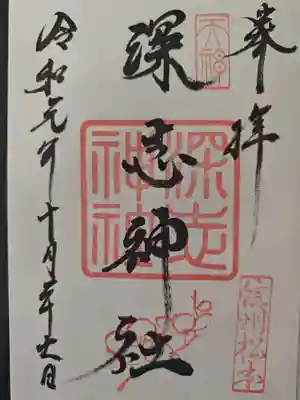 奉拝
天神
深志神社
深志
神社
信州松本
令和元年十月二十六日